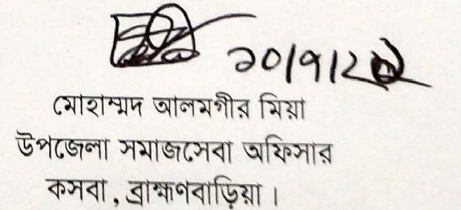 ২০/৭/২
মোহাম্মদ আলমগীর মিয়া
উপজেলা সমাজসেবা অফিসার
কসবা, ব্রাহ্মণবাড়িয়া।